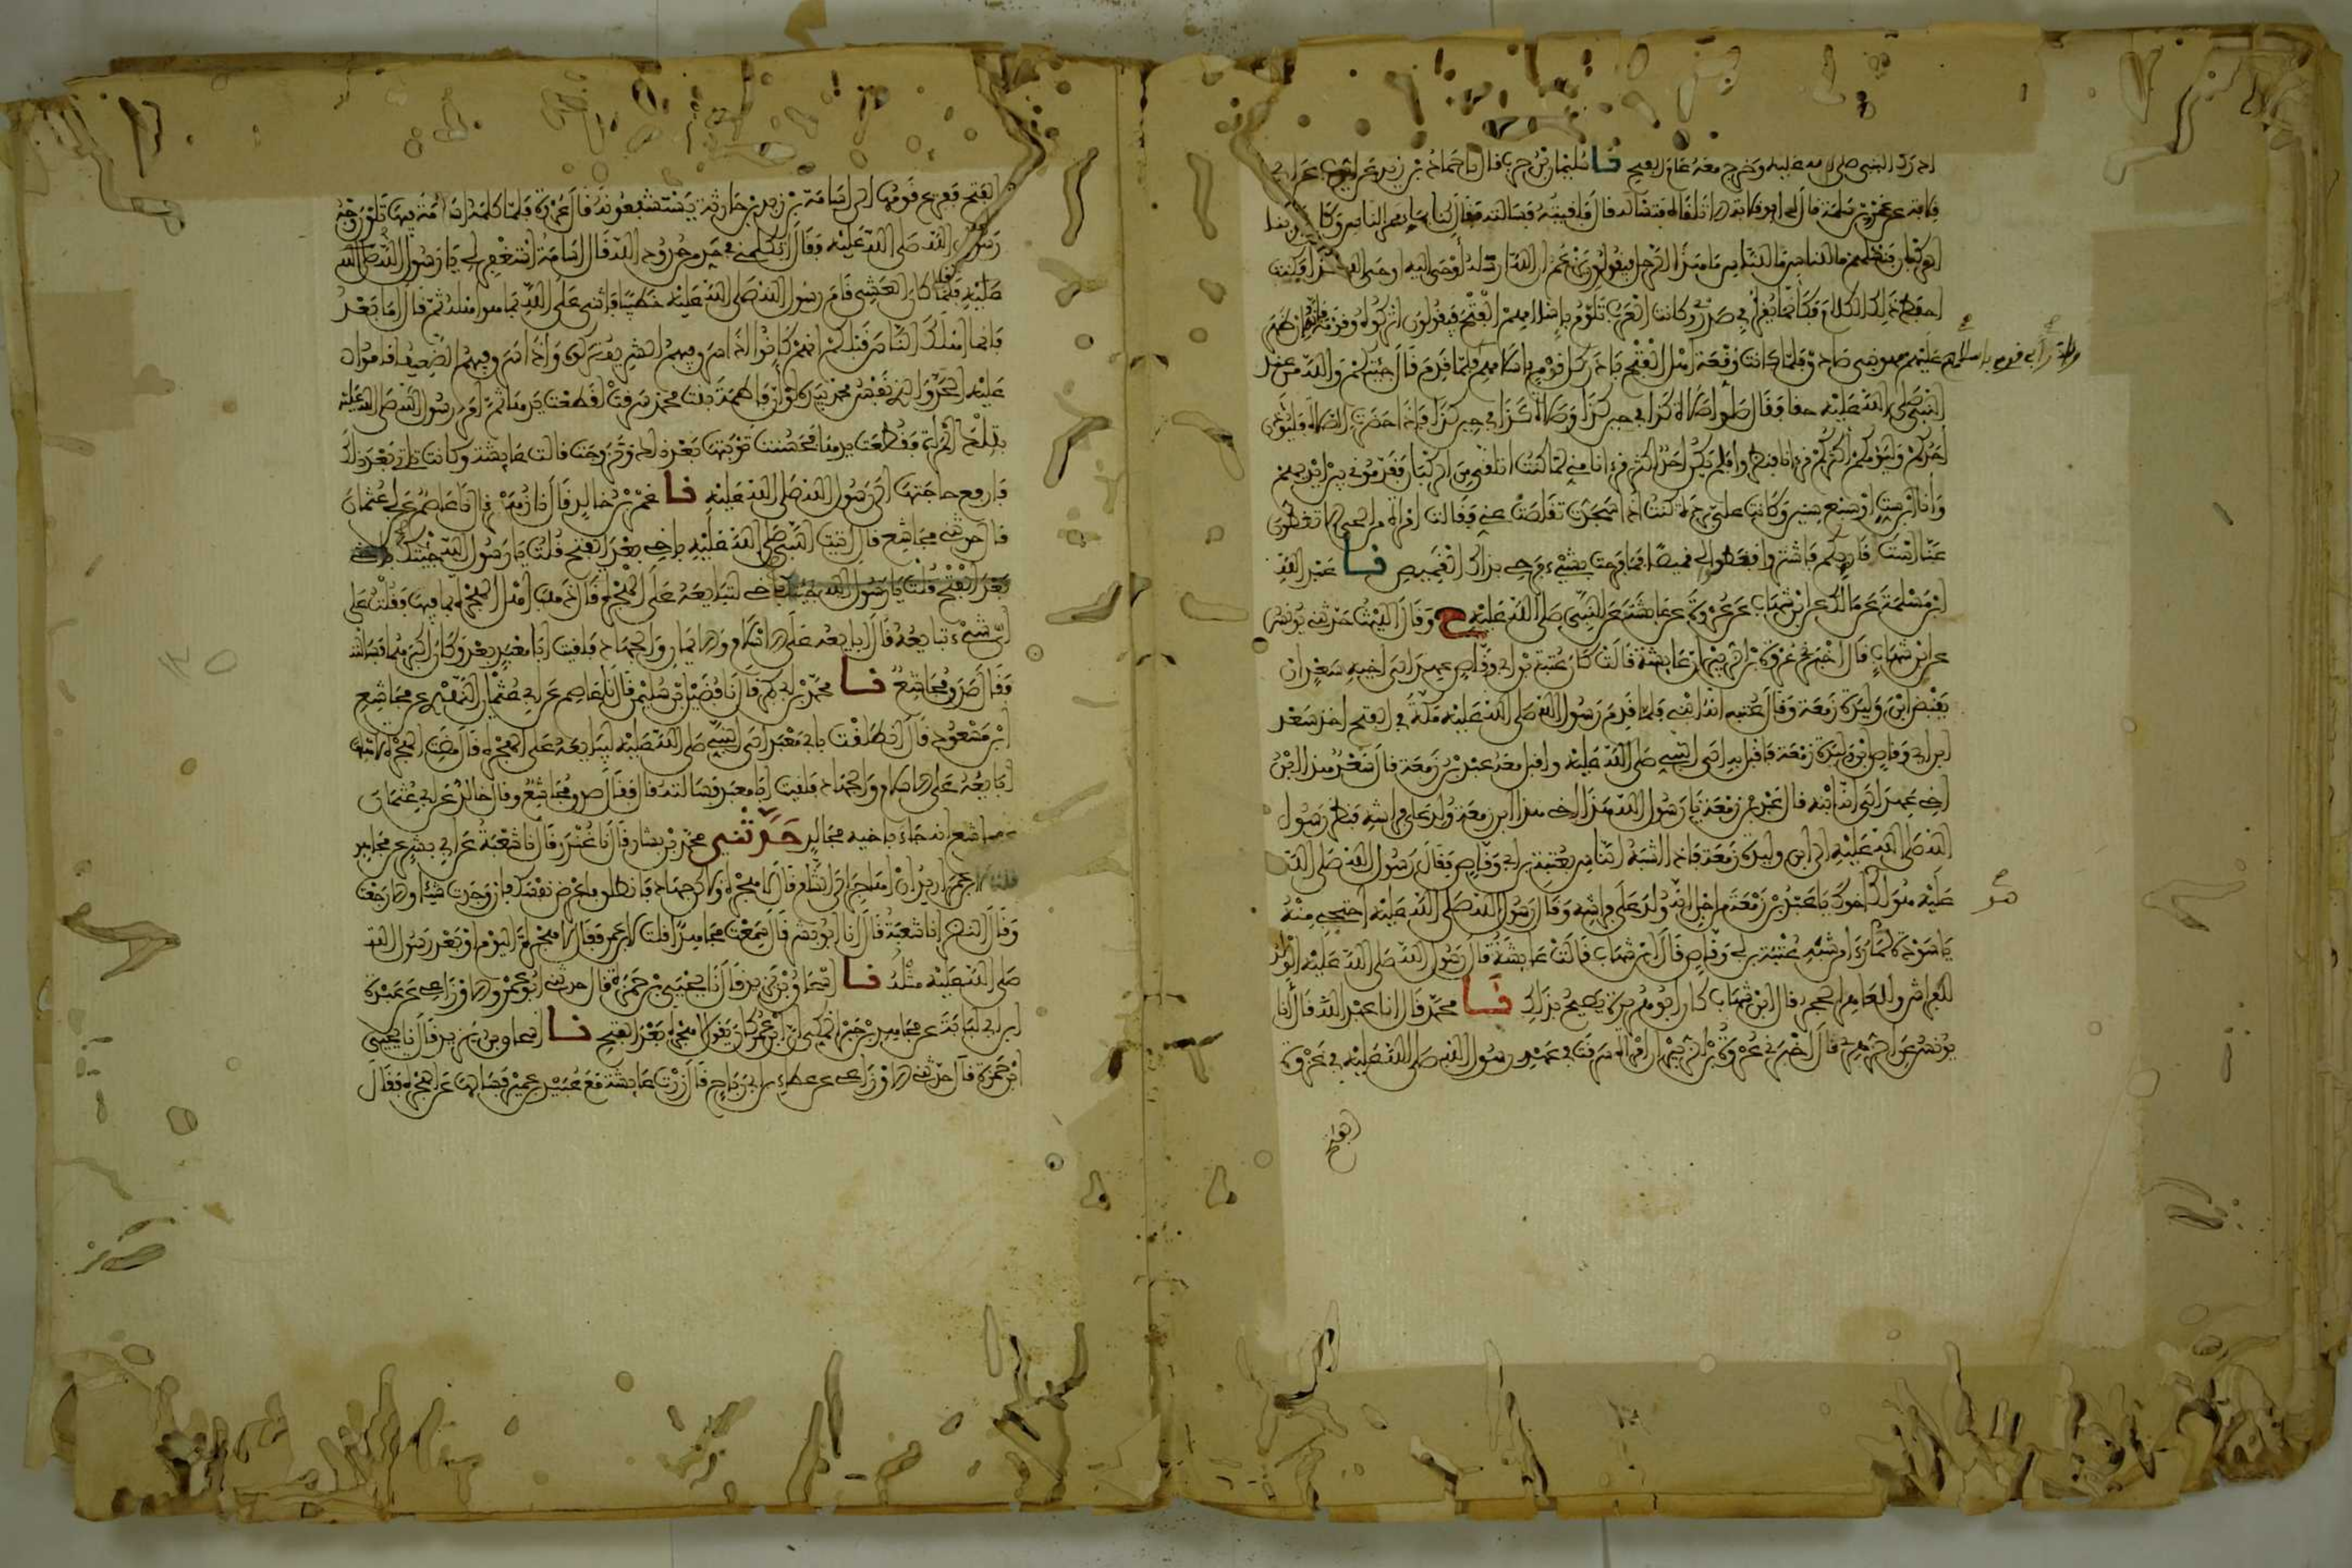 ادرك النبي صلى الله عليه وخرج معه عام الفتح نا سليمان بن حرب قال نا حماد بن زيد عن ايوب عن ابي
قلابة عن عمرو بن سلمة قال لي ابو قلابة الا تلقاه فتساله قال فلقيته فسالته فقال كنا بما ممر الناس وكان يمر بنا
الركبان فنسالهم ما للناس ما للناس ما هذا الرجل فيقولون يزعم ان الله ارسله أوحى اليه او حى الله كذا فكنت
احفظ ذلك الكلام وكانما يغرى في صدري وكانت العرب تلوم باسلامهم الفتح فيقولون اتركوه وقومه فانه ان ظهر
عليهم فهو نبي صادق فلما كانت وقعة اهل الفتح بادر كل قوم باسلامهم فلما قدم قال جئتكم والله من عند
وبدر أبي قومي باسلامهم
النبي صلى الله عليه حقا فقال صلوا صلاة كذا في حين كذا وصلاة كذا في حين كذا فاذا حضرت الصلاة فليؤذن
احدكم وليؤمكم اكثركم قرءانا فنظروا فلم يكن احد اكثر قرءانا مني لما كنت اتلقى من الركبان فقدموني بين ايديهم
وانا ابن ست او سبع سنين وكانت علي بردة كنت اذا سجدت تقلصت عني فقالت امراة من الحي الا تغطون
عنا است قاريكم فاشتروا فقطعوا لي قميصا فما فرحت بشيء فرحي بذلك القميص نا عبد الله
ابن مسلمة عن مالك عن ابن شهاب عن عروة عن عايشة عن النبي صلى الله عليه ح وقال الليث حدثني يونس
عن ابن شهاب قال اخبرني عروة بن الزبير ان عايشة قالت كان عتبة بن ابي وقاص عهد الى اخيه سعد ان
يقبض ابن وليدة زمعة وقال عتبه انه ابني فلما قدم رسول الله صلى الله عليه مكة في الفتح اخذ سعد
ابن ابي وقاص ابن وليدة زمعة فاقبل به الى النبي صلى الله عليه واقبل معه عبد بن زمعة فقال سعد هذا ابن
اخي عهد الي انه ابنه قال عبد بن زمعة يا رسول الله هذا اخي هذا ابن زمعة ولد على فراشه فنظر رسول
الله صلى الله عليه الى ابن وليدة زمعة فاذا اشبه الناس بعتبة بن ابي وقاص فقال رسول الله صلى الله
عليه هو لك هو اخوك يا عبد بن زمعة من اجل انه ولد على فراشه وقال رسول الله صلى الله عليه احتجبي منه
هو
يا سودة لما رءا من شبه عتبة بن ابي وقاص قال ابن شهاب قالت عايشة قال رسول الله صلى الله عليه الولد
للفراش وللعاهر الحجر وقال ابن شهاب كان ابو هريرة يصيح بذلك نا محمد قال انا عبد الله قال أنا
يونس عن الزهري قال اخبرني عروة بن الزبير ان امراة سرقت في عهد رسول الله صلى الله عليه في غزوة
الفتح
الفتح ففزع قومها الى اسامة بن زيد بن حارثة يستشفعونه قال عروة فلما كلمه اسامة فيها تلون وجه
رسول الله صلى الله عليه فقال اتكلمني في حد من حدود الله قال اسامة استغفر لي يا رسول الله صلى الله
عليه فلما كان العشي قام رسول الله صلى الله عليه خطيبا فاثنى على الله بما هو اهله ثم قال اما بعد
فانما اهلك الناس قبلكم انهم كانوا اذا سرق فيهم الشريف تركوه واذا سرق فيهم الضعيف اقاموا
عليه الحد والذي نفس محمد بيده لو ان فاطمة بنت محمد سرقت لقطعت يدها ثم امر رسول الله صلى الله عليه
بتلك المراة فقطعت يدها فحسنت توبتها بعد ذلك وتزوجت قالت عايشة وكانت تاتي بعد ذلك
فارفع حاجتها الى رسول الله صلى الله عليه نا عمرو بن خالد قال نا زهير قال نا عاصم عن ابي عثمان
قال حدثني مجاشع قال اتيت النبي صلى الله عليه باخي بعد الفتح قلت يا رسول الله جئتك باخي
بعد الفتح قلت يا رسول الله جئتك باخي لتبايعه على الهجرة قال ذهب اهل الهجرة بما فيها فقلت على
اي شيء تبايعه قال ابايعه على الاسلام والايمان والجهاد فلقيت ابا معبد بعد وكان اكبرهما فسالته
فقال صدق مجاشع نا محمد بن ابي بكر قال نا فضيل بن سليمن قال نا عاصم عن ابي عثمان النهدي عن مجاشع
ابن مسعود قال انطلقت بابي معبد الى النبي صلى الله عليه ليبايعه على الهجرة قال مضت الهجرة لاهلها
ابايعه على الاسلام والجهاد فلقيت ابا معبد فسالته فقال صدق مجاشع وقال خالد عن ابي عثمان
عن مجاشع انه جاء باخيه مجالد حدثني محمد بن بشار قال نا غندر قال نا شعبة عن ابي بشر عن مجاهد
قلت لابن عمر اريد ان اهاجر الى الشام قال لا هجرة ولاكن جهاد فانطلق فاعرض نفسك فان وجدت شيئا والا رجعت
وقال النضر انا شعبة قال انا ابو بشر قال سمعت مجاهدا قلت لابن عمر فقال لا هجرة اليوم او بعد رسول الله
صلى الله عليه مثله نا اسحاق بن يزيد قال نا يحيى بن حمزة قال حدثني ابو عمرو الاوزاعي عن عبدة
ابن ابي لبابة عن مجاهد بن جبر المكي ان ابن عمر كان يقول لا هجرة بعد الفتح نا اسحاق بن يزيد قال نا يحيى
ابن حمزة قال حدثني الاوزاعي عن عطاء بن ابي رباح قال زرت عايشة مع عبيد بن عمير فسالها عن الهجرة فقال